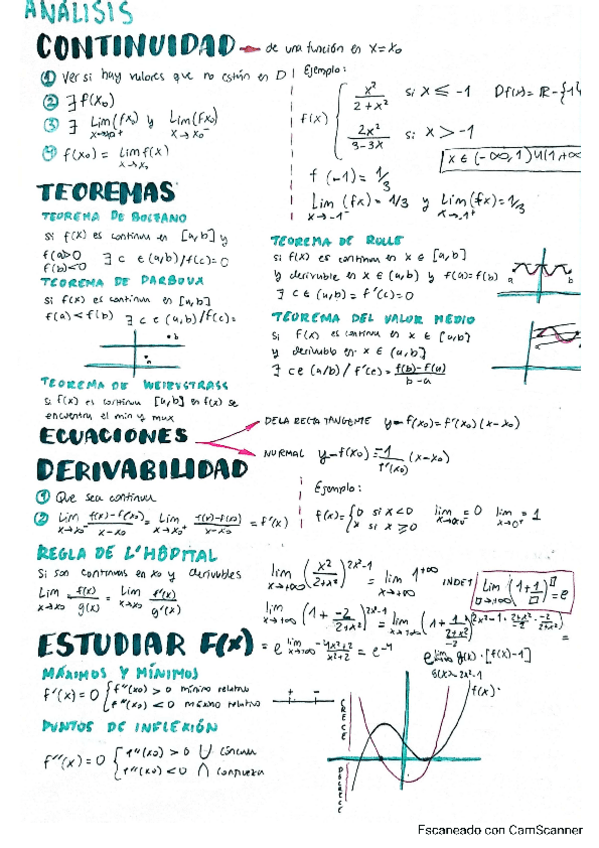 ANÁLISIS
CONTINUIDAD → de una función en x=x₀
① Ver si hay valores que no están en D
② ∃ f(x₀)
③ ∃ Lim (fx) x→x₀⁺ y Lim (fx) x→x₀⁻
④ f(x₀) = Lim f(x) x→x₀
Ejemplo:
f(x) { x²/(2+x²) si x ≤ -1 Df(x) = ℝ - {1}
2x²/(3-3x) si x > -1
x ∈ (-∞,1) ∪ (1,+∞
f(-1) = 1/3
Lim (fx) = 1/3 x→-1⁻ y Lim (fx) = 1/3 x→-1⁺
TEOREMAS
TEOREMA DE BOLZANO
si f(x) es continua en [a,b] y
f(a)>0
f(b)<0 ∃ c ∈ (a,b)/f(c)=0
TEOREMA DE DARBOUX
si f(x) es continua en [a,b]
f(a) < f(b) ∃ c ∈ (a,b)/f(c)=
b
a
TEOREMA DE WEIERSTRASS
si f(x) es continua [a,b] en f(x) se
encuentra el min y max
TEOREMA DE ROLLE
si f(x) es continua en x ∈ [a,b]
y derivable en x ∈ (a,b) y f(a)=f(b)
∃ c ∈ (a,b) = f'(c)=0
a b
TEOREMA DEL VALOR MEDIO
Si f(x) es continua en x ∈ [a,b]
y derivable en x ∈ (a,b)
∃ c ∈ (a/b) / f'(c) = (f(b)-f(a))/(b-a)
ECUACIONES
DE LA RECTA TANGENTE y-f(x₀)=f'(x₀)(x-x₀)
NORMAL y-f(x₀)=-1/f'(x₀) (x-x₀)
DERIVABILIDAD
① Que sea continua
② Lim x→x₀⁻ (f(x)-f(x₀))/(x-x₀) = Lim x→x₀⁺ (f(x)-f(x₀))/(x-x₀) = f'(x)
Ejemplo:
f(x)= {0 si x<0
x si x≥0
lim = 0 lim x→0⁺ = 1
REGLA DE L'HÔPITAL
Si son continuas en x₀ y derivables
Lim x→x₀ f(x)/g(x) = Lim x→x₀ f'(x)/g'(x)
lim x→+∞ (x²/(2+x²))^(2x²-1) = lim x→+∞ 1^(+∞) INDET
Lim □→+∞ (1+1/□)^□ = e
lim x→+∞ (1 + -2/(2+x²))^(2x²-1) = lim x→+∞ (1 + 1/((2+x²)/-2))^(2x²-1 · (2+x²)/-2 · -2/(2+x²)) =
= e^(lim x→+∞ (-4x²+2)/(x²+2)) = e⁻⁴
e^(lim g(x)·[f(x)-1])
ESTUDIAR F(x)
MÁXIMOS Y MÍNIMOS
f'(x)=0 { f''(x₀) > 0 mínimo relativo
f''(x₀) < 0 máximo relativo
+ -
PUNTOS DE INFLEXIÓN
f''(x)=0 { f''(x₀) > 0 ∪ cóncava
f''(x₀) < 0 ∩ convexa
CRECE
DECRECE
f(x)
Escaneado con CamScanner